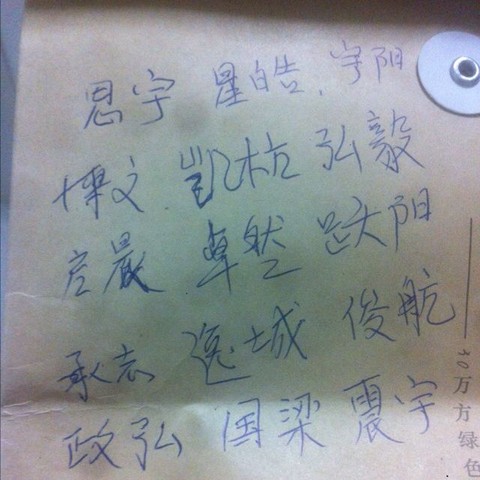 恩宇 星皓、宇阳
博文 凯杭 弘毅
启晨 卓然 跃阳
承志 逸城 俊航
政弘 国梁 震宇
万方绿色